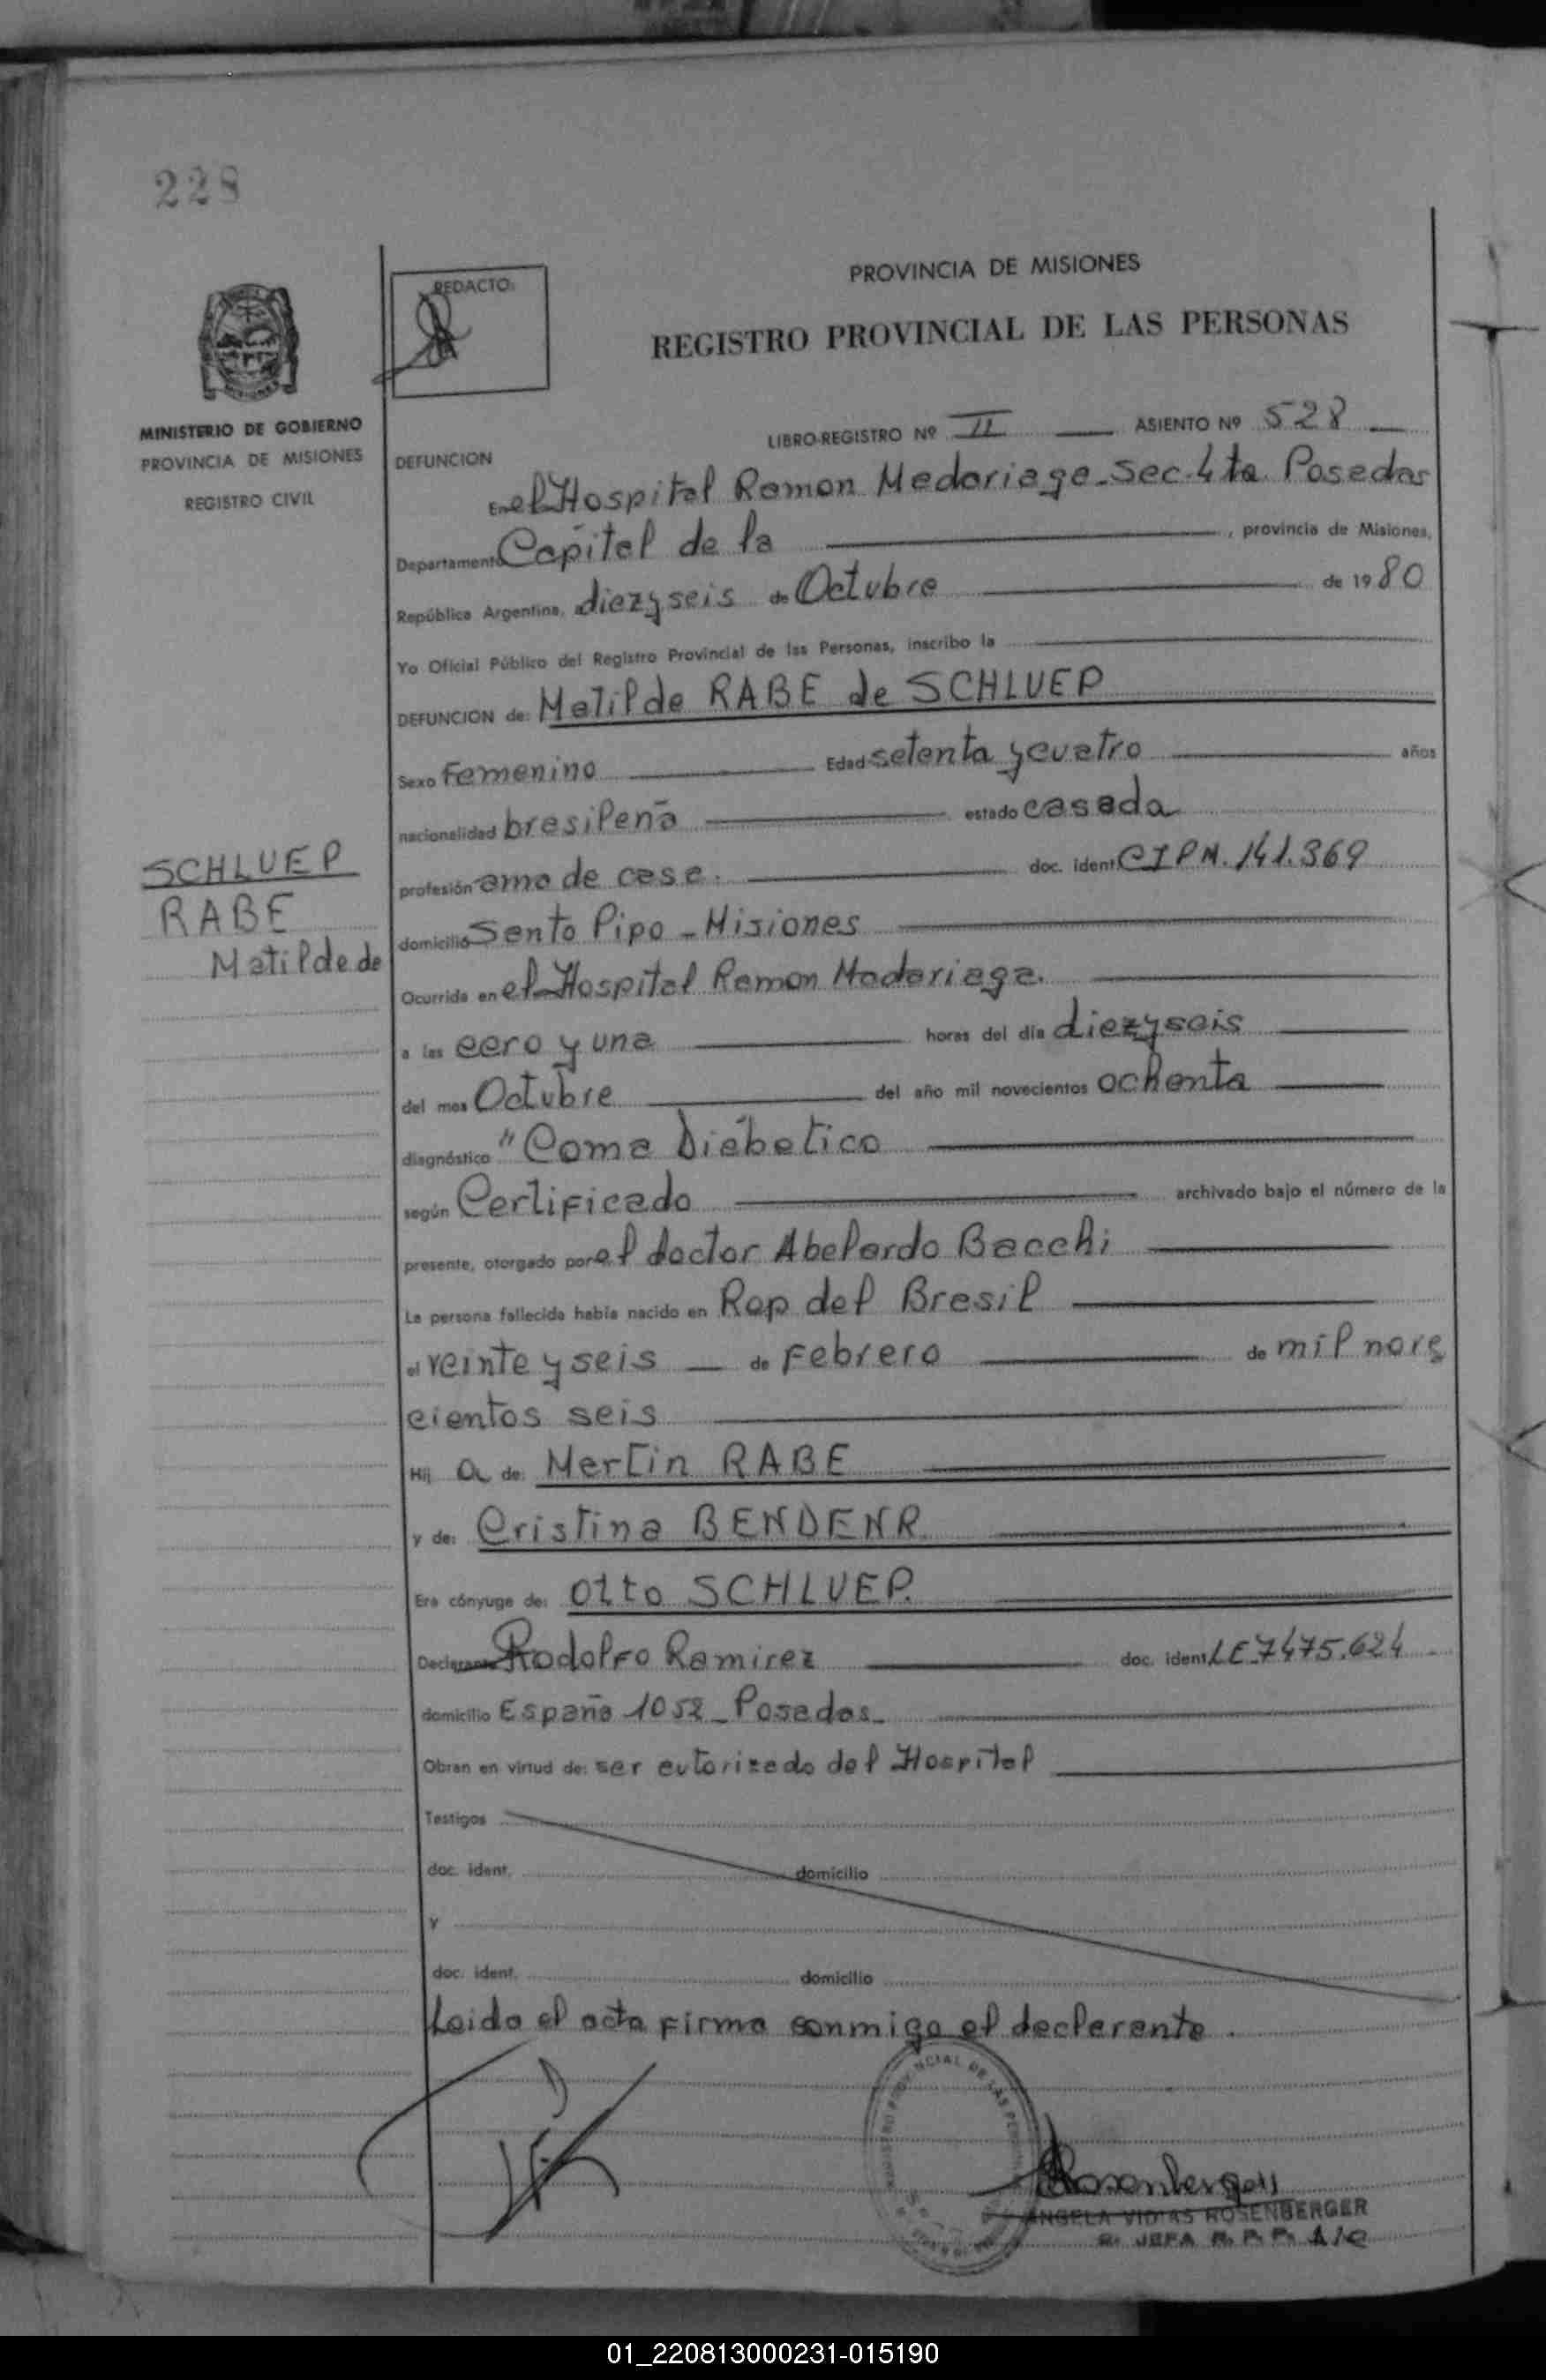 228
REDACTO:
PROVINCIA DE MISIONES
REGISTRO PROVINCIAL DE LAS PERSONAS
MINISTERIO DE GOBIERNO
PROVINCIA DE MISIONES
REGISTRO CIVIL
LIBRO-REGISTRO Nº II ASIENTO Nº 528
DEFUNCION
En el Hospital Ramon Madariaga - Sec. 4ta. Posadas
Departamento Capital de la , provincia de Misiones,
República Argentina, a diez y seis de Octubre de 1980
Yo Oficial Público del Registro Provincial de las Personas, inscribo la
DEFUNCION de: Matilde RABE de SCHLUEP
Sexo Femenino Edad setenta y cuatro años
nacionalidad brasileña estado casada
SCHLUEP
RABE
Matilde de
profesión ama de casa. doc. ident. CIPM. 141.369
domicilio Santo Pipo - Misiones
Ocurrida en el Hospital Ramon Madariaga.
a las cero y una horas del día diez y seis
del mes Octubre del año mil novecientos ochenta
diagnóstico "Coma Diabetico
según Certificado archivado bajo el número de la
presente, otorgado por el doctor Abelardo Bacchi
La persona fallecida había nacido en Rep del Brasil
el veinte y seis de Febrero de mil nove
cientos seis
Hij a de: Martin RABE
y de: Cristina BENDENR
Era cónyuge de: Otto SCHLUEP.
Declarante Rodolfo Ramirez doc. ident. LE.7475.624
domicilio España 1052 - Posadas -
Obran en virtud de: ser autorizado del Hospital
Testigos
doc. ident. domicilio
y
doc. ident. domicilio
Leida el acta firma conmigo el declarante.
Rosenberger
ANGELA VIDAS ROSENBERGER
JEFA R. P. P.
01_220813000231-015190